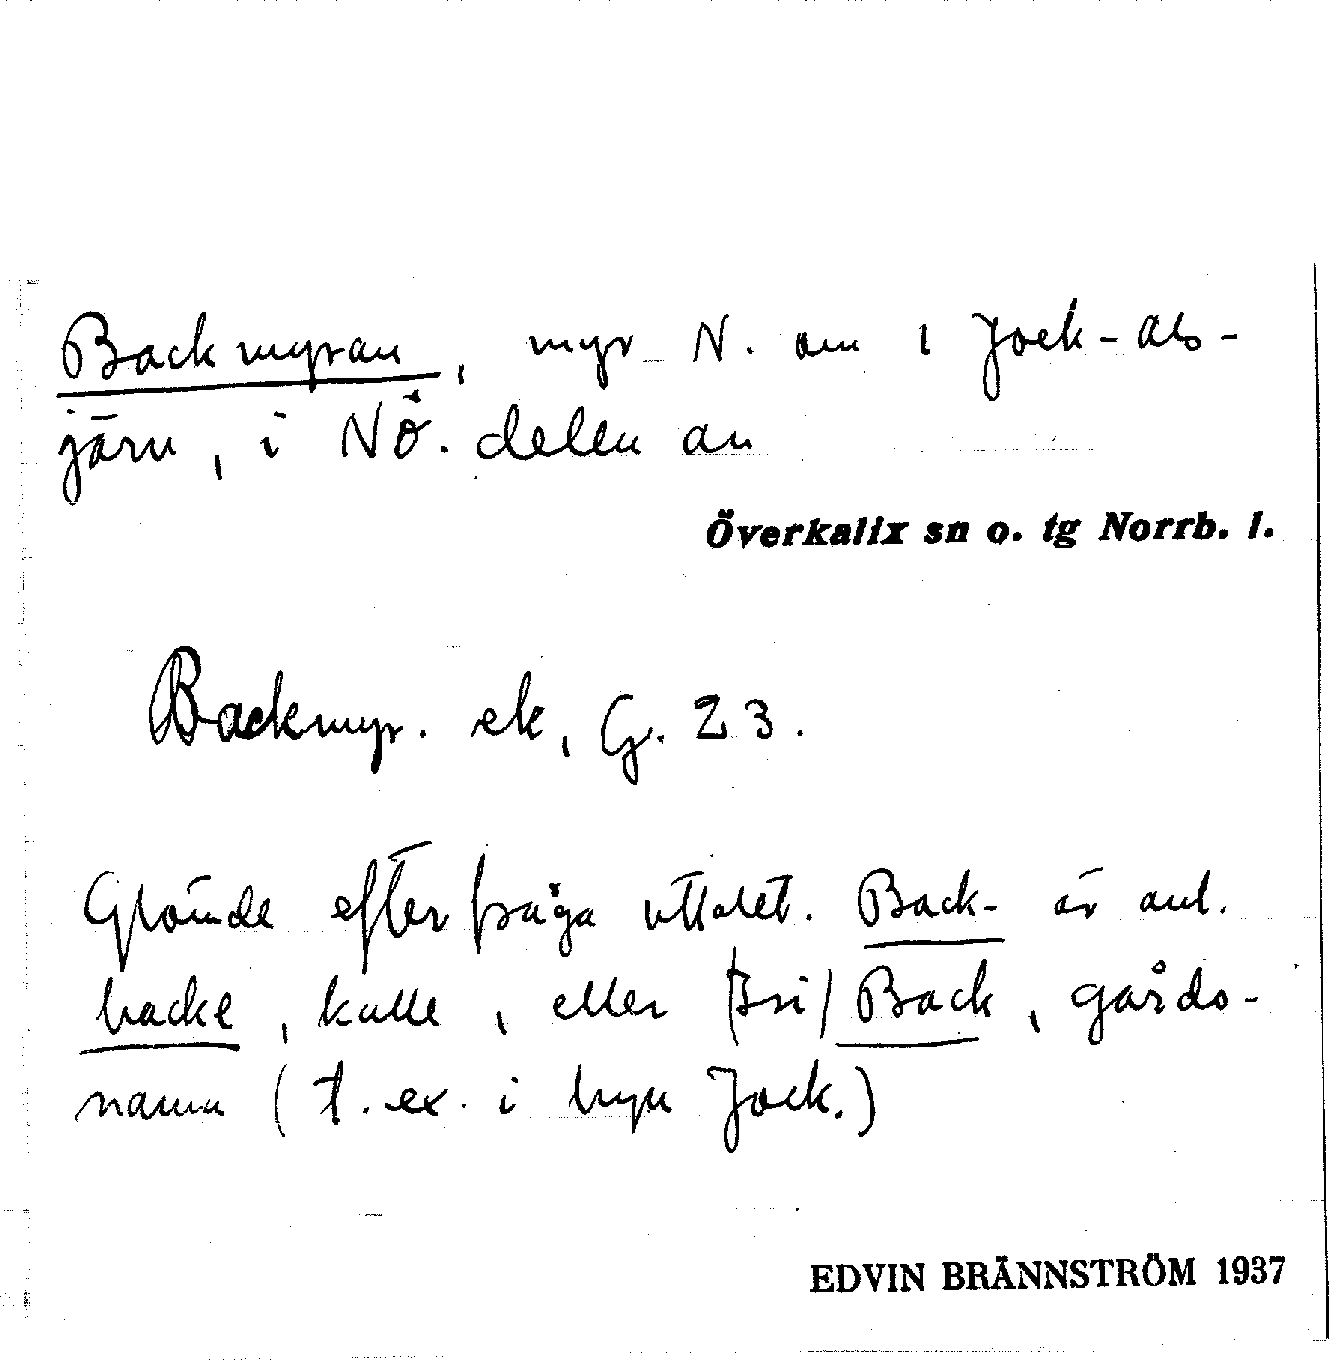 Backmyran, myr N. om 1 Jock-als-
järv, i NÖ. delen av
Överkalix sn o. tg Norrb. l.
Backmyr. ek, G. 23.
Glömde efterfråga uttalet. Back- är ant.
backe, kulle, eller (Bri) Back, gårds-
namn (t. ex. i byn Jock.)
EDVIN BRÄNNSTRÖM 1937